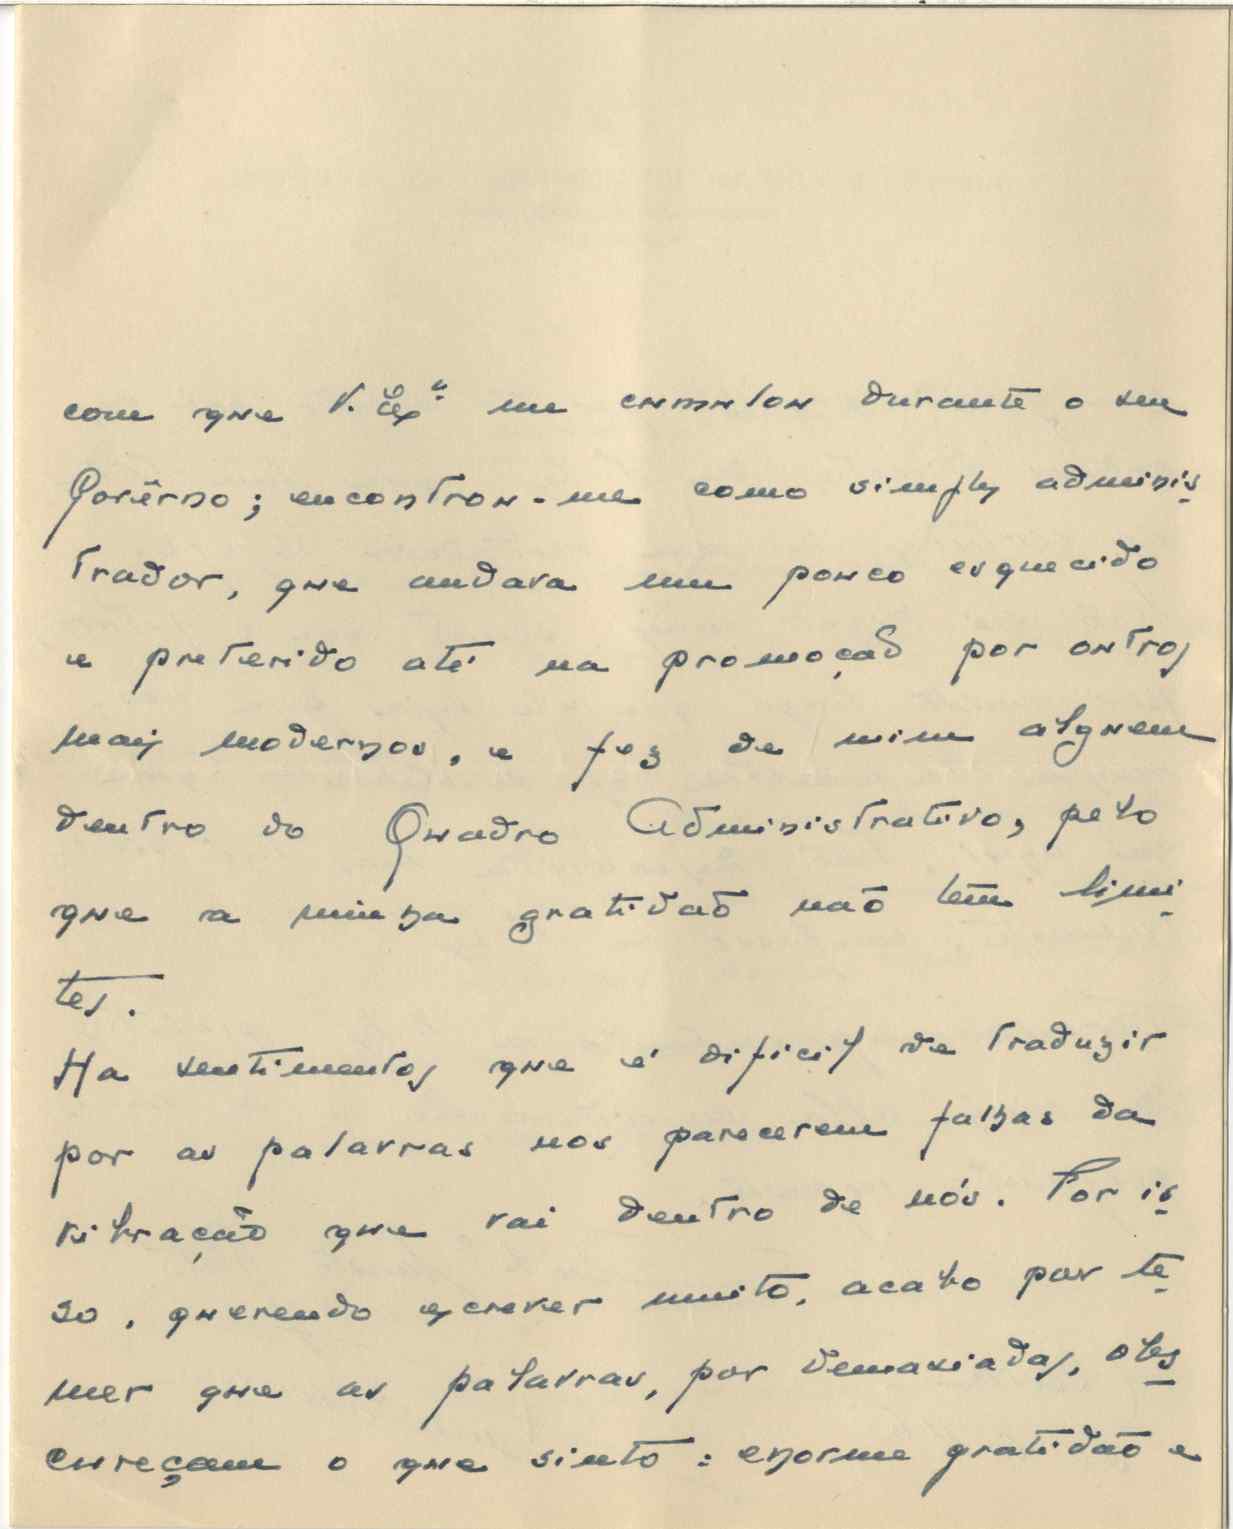 com que V. Exª me cumulou durante o seu
Govêrno; encontrou-me como simples adminis-
trador, que andava um pouco esquecido
e preterido até na promoção por outros
mais modernos, e fez de mim alguem
dentro do Quadro Administrativo, pelo
que a minha gratidão não têm limi-
tes.
Ha sentimentos que é dificil de traduzir
por as palavras nos parecerem falhas da
vibração que vai dentro de nós. Por is-
so, querendo escrever muito, acabo por te-
mer que as palavras, por demasiadas, obs-
cureçam o que sinto: enorme gratidão e